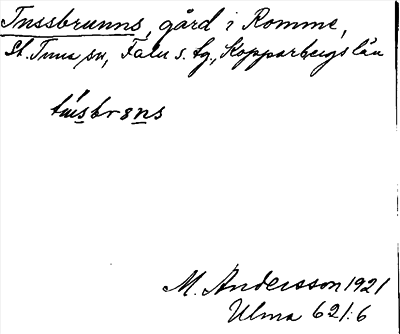 Tussbrunns, gård i Romme,
St. Tuna sn, Falu s. tg., Kopparbergs län
tu̇sbrɘns
M. Andersson 1921
Ulma 621:6